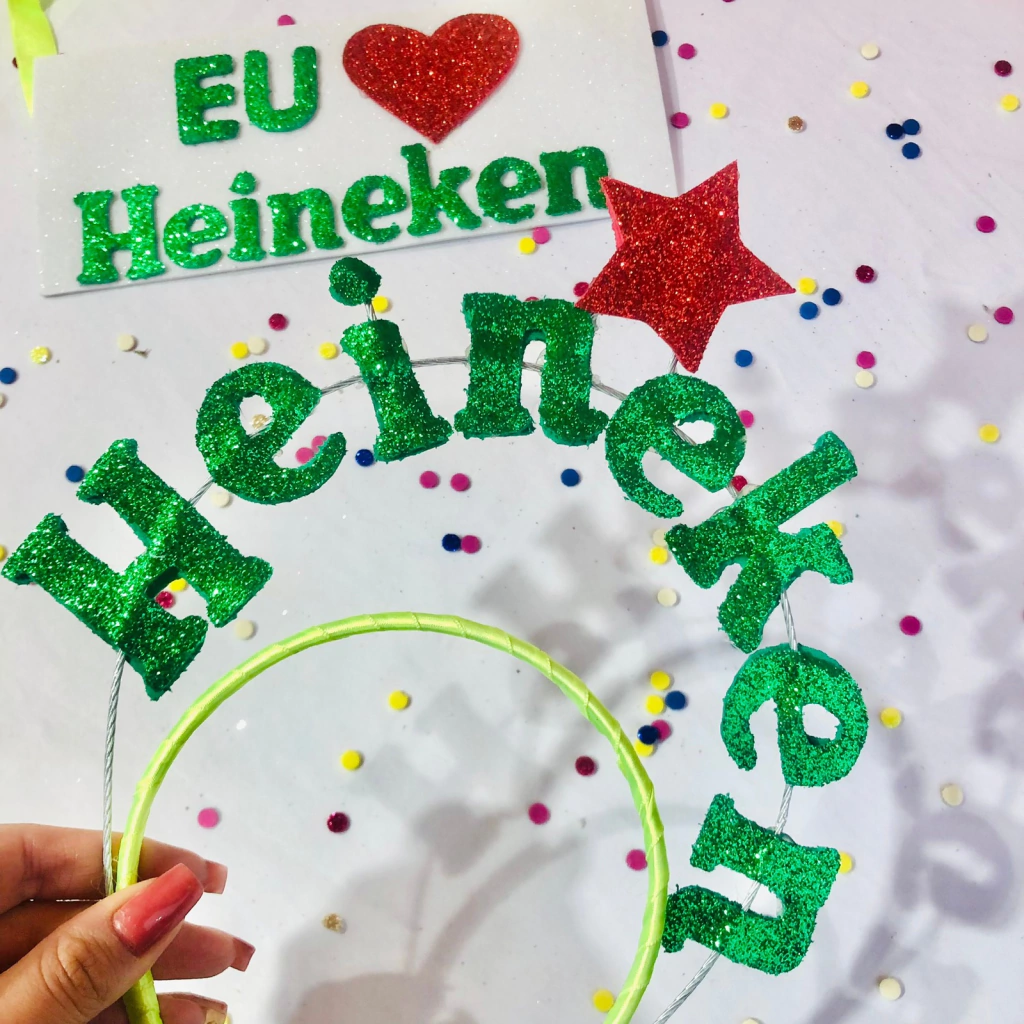 EU
Heineken
Heineken